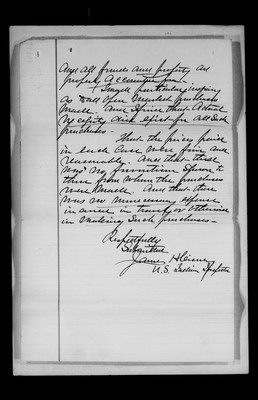 And all funds and property are
properly accounted for
I made particular inquiry
as to all open Market purchases
Made. And I find that actual
Necessity did exist for all such
purchases -
That the prices paid
in each case were fair and
reasonable. And that there
was no favoritism shown to
those from whom the purchases
were Made. And that there
was no unnecessary expense
incurred in transport or otherwise
in making such purchases -
Respectfully
Submitted
James H
U.S. Indian Inspector